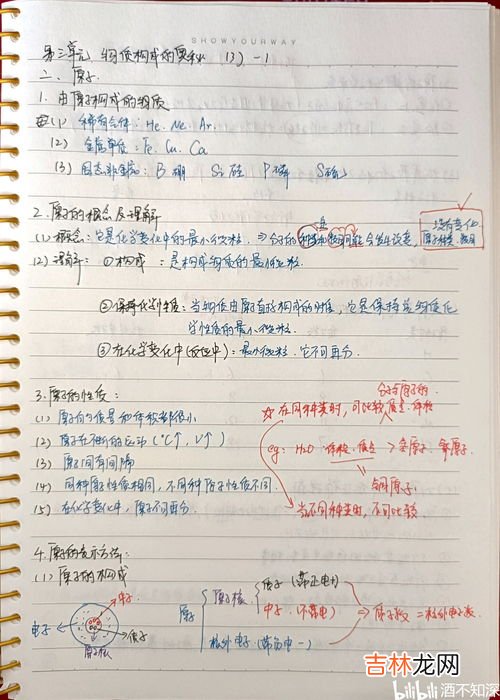 SHOWYOURWAY
第三单元 物质构成的奥秘 (3)-1
二、原子
1. 由原子构成的物质
(1) 稀有气体: He. Ne. Ar.
(2) 金属单质: Fe. Cu. Ca
(3) 固态非金属: B 硼 Si 硅 P 磷 S 硫
2. 原子的概念及理解
(1) 概念: 它是化学变化中的最小微粒. ⇒ 分子的种类和数目可能会发生改变,
没有变化
原子种类、数目
(2) 理解: ①构成: 是构成物质的最小微粒.
②保持化学性质: 当物质由原子直接构成的时候, 它是保持该物质化
学性质的最小微粒.
③在化学变化中(反应中): 最小微粒. 它不可再分.
3. 原子的性质:
(1) 原子的质量和体积都很小
(2) 原子在不断的运动 (℃↑, V↑)
(3) 原子间有间隔
(4) 同种原子性质相同, 不同种原子性质不同.
(5) 在化学变化中, 原子不可再分.
分子与原子的
☆ 在同种类时, 可比较质量、体积
eg: H2O 体积、质量 > 氢原子、氧原子
当不同种类时, 不可比较
4. 原子的表示方法:
(1) 原子的构成
电子
中子
质子
原子核
原子
原子核
质子 (带正电+)
中子 (不带电)
核外电子 (带负电-)
⇒ 质子数 = 核外电子数
吉林龙网
bilibili 酒不知深